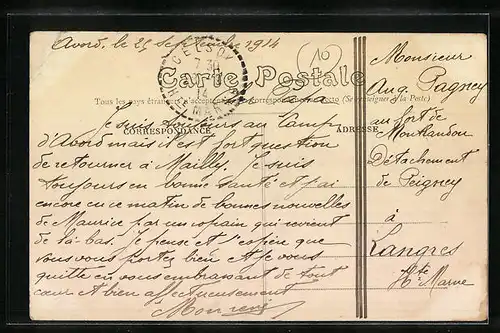 Avord, le 25 septembre 1914
Carte Postale
Tous les pays étrangers n'acceptent pas la Correspondance au recto (Se renseigner à la Poste)
CORRESPONDANCE
ADRESSE
10
7 30
14
Je suis toujours au Camp
d'Avord mais il est fort question
de retourner à Mailly. Je suis
toujours en bonne santé et j'ai
encore eu ce matin de bonnes nouvelles
de Maurice par un copain qui revient
de là-bas. Je pense et j'espère que
vous vous portez bien et je vous
quitte en vous embrassant de tout
cœur et bien affectueusement
Monsieur
Aug. Pagney
au fort de
Montlandon
Détachement
de Peigney
à
Langres
Hte Marne